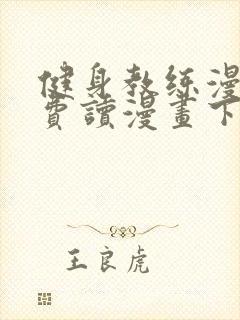 健身教练漫
费讀漫畫下
王良虎